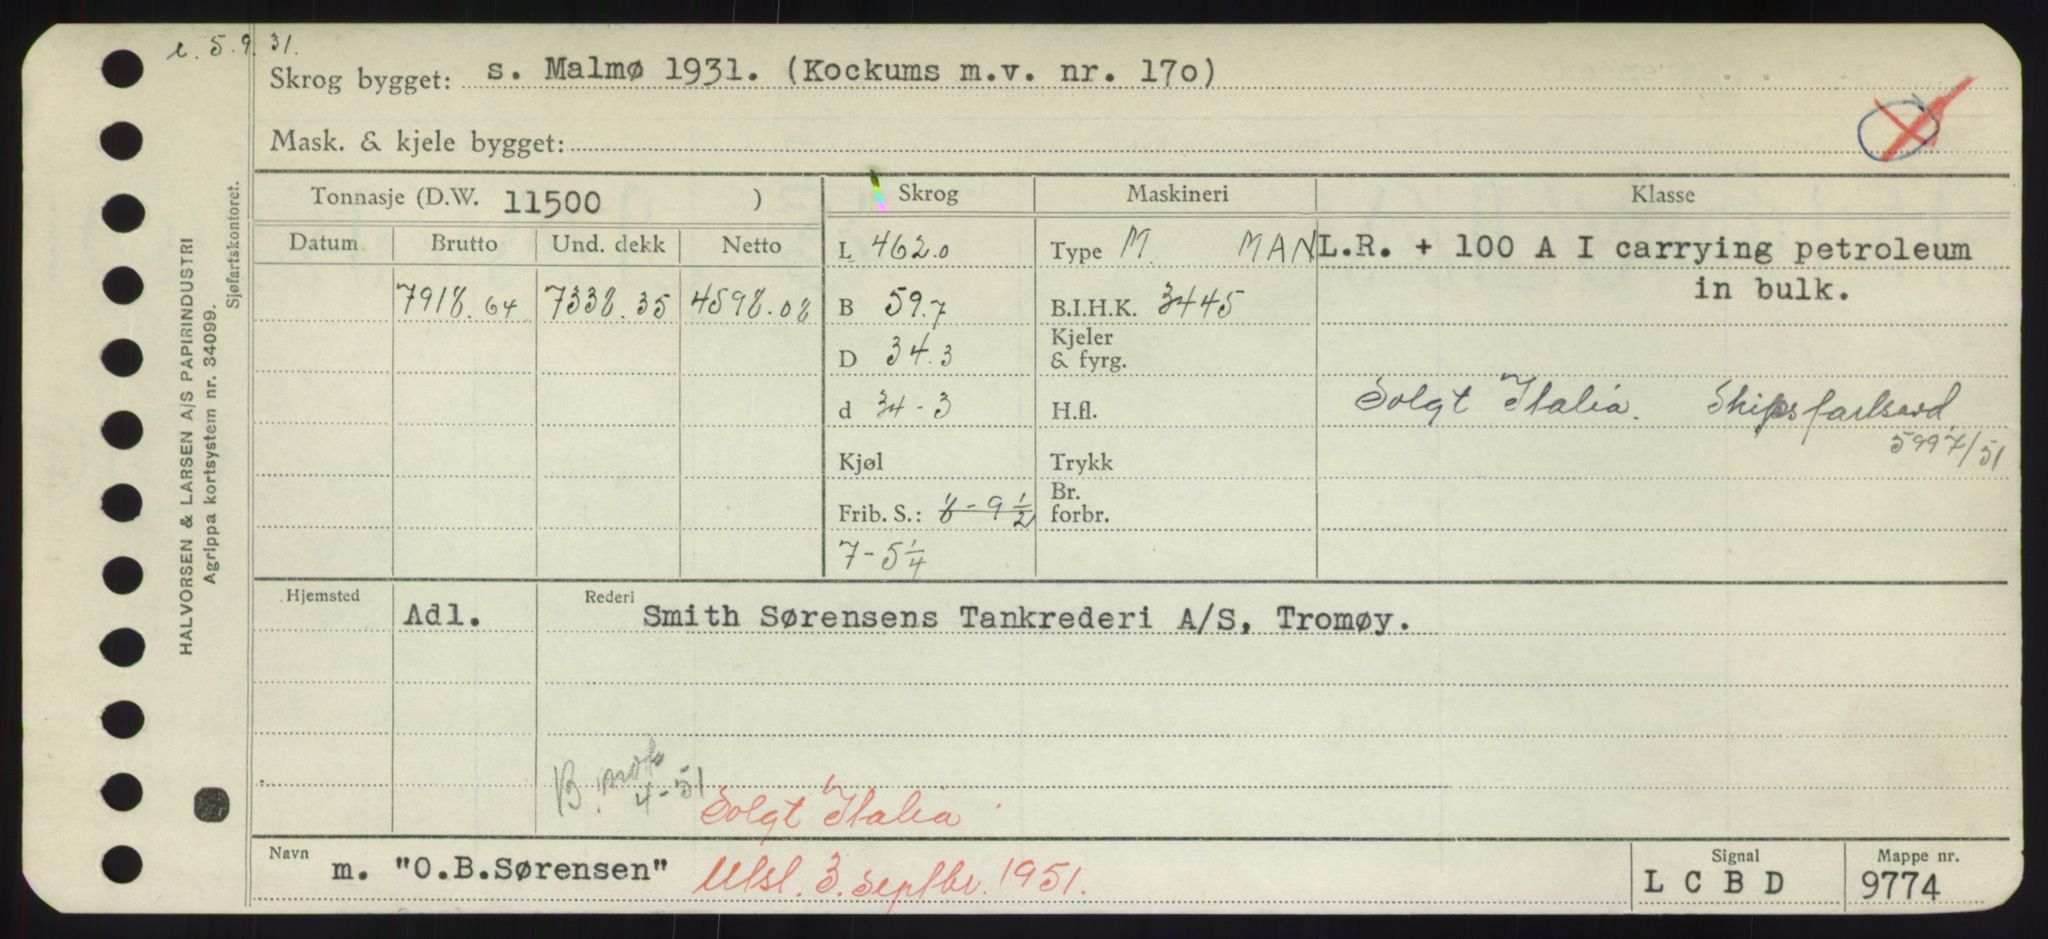 5.9.31.
Skrog bygget: s. Malmø 1931. (Kockums m.v. nr. 170)
Mask. & kjele bygget:
Tonnasje (D.W. 11500 ) Skrog Maskineri Klasse
Datum Brutto Und. dekk Netto
7918.64 7338.35 4598.08
L 462.0
B 59.7
D 34.3
d 34-3
Kjøl
Frib. S.: 8-9 1/2
7-5 1/4
Type M. MAN
B.I.H.K. 3445
Kjeler
& fyrg.
H.fl.
Trykk
Br.
forbr.
L.R. + 100 A I carrying petroleum
in bulk.
Solgt Italia. Skipsfartsavd.
5997/51
Hjemsted Adl. Rederi Smith Sørensens Tankrederi A/S, Tromøy.
B. not.
4-51
Solgt Italia
Navn m. "O.B.Sørensen" Utsl. 3. Septbr. 1951.
Signal L C B D
Mappe nr. 9774
HALVORSEN & LARSEN A/S PAPIRINDUSTRI
Agrippa kortsystem nr. 34099.
Sjøfartskontoret.